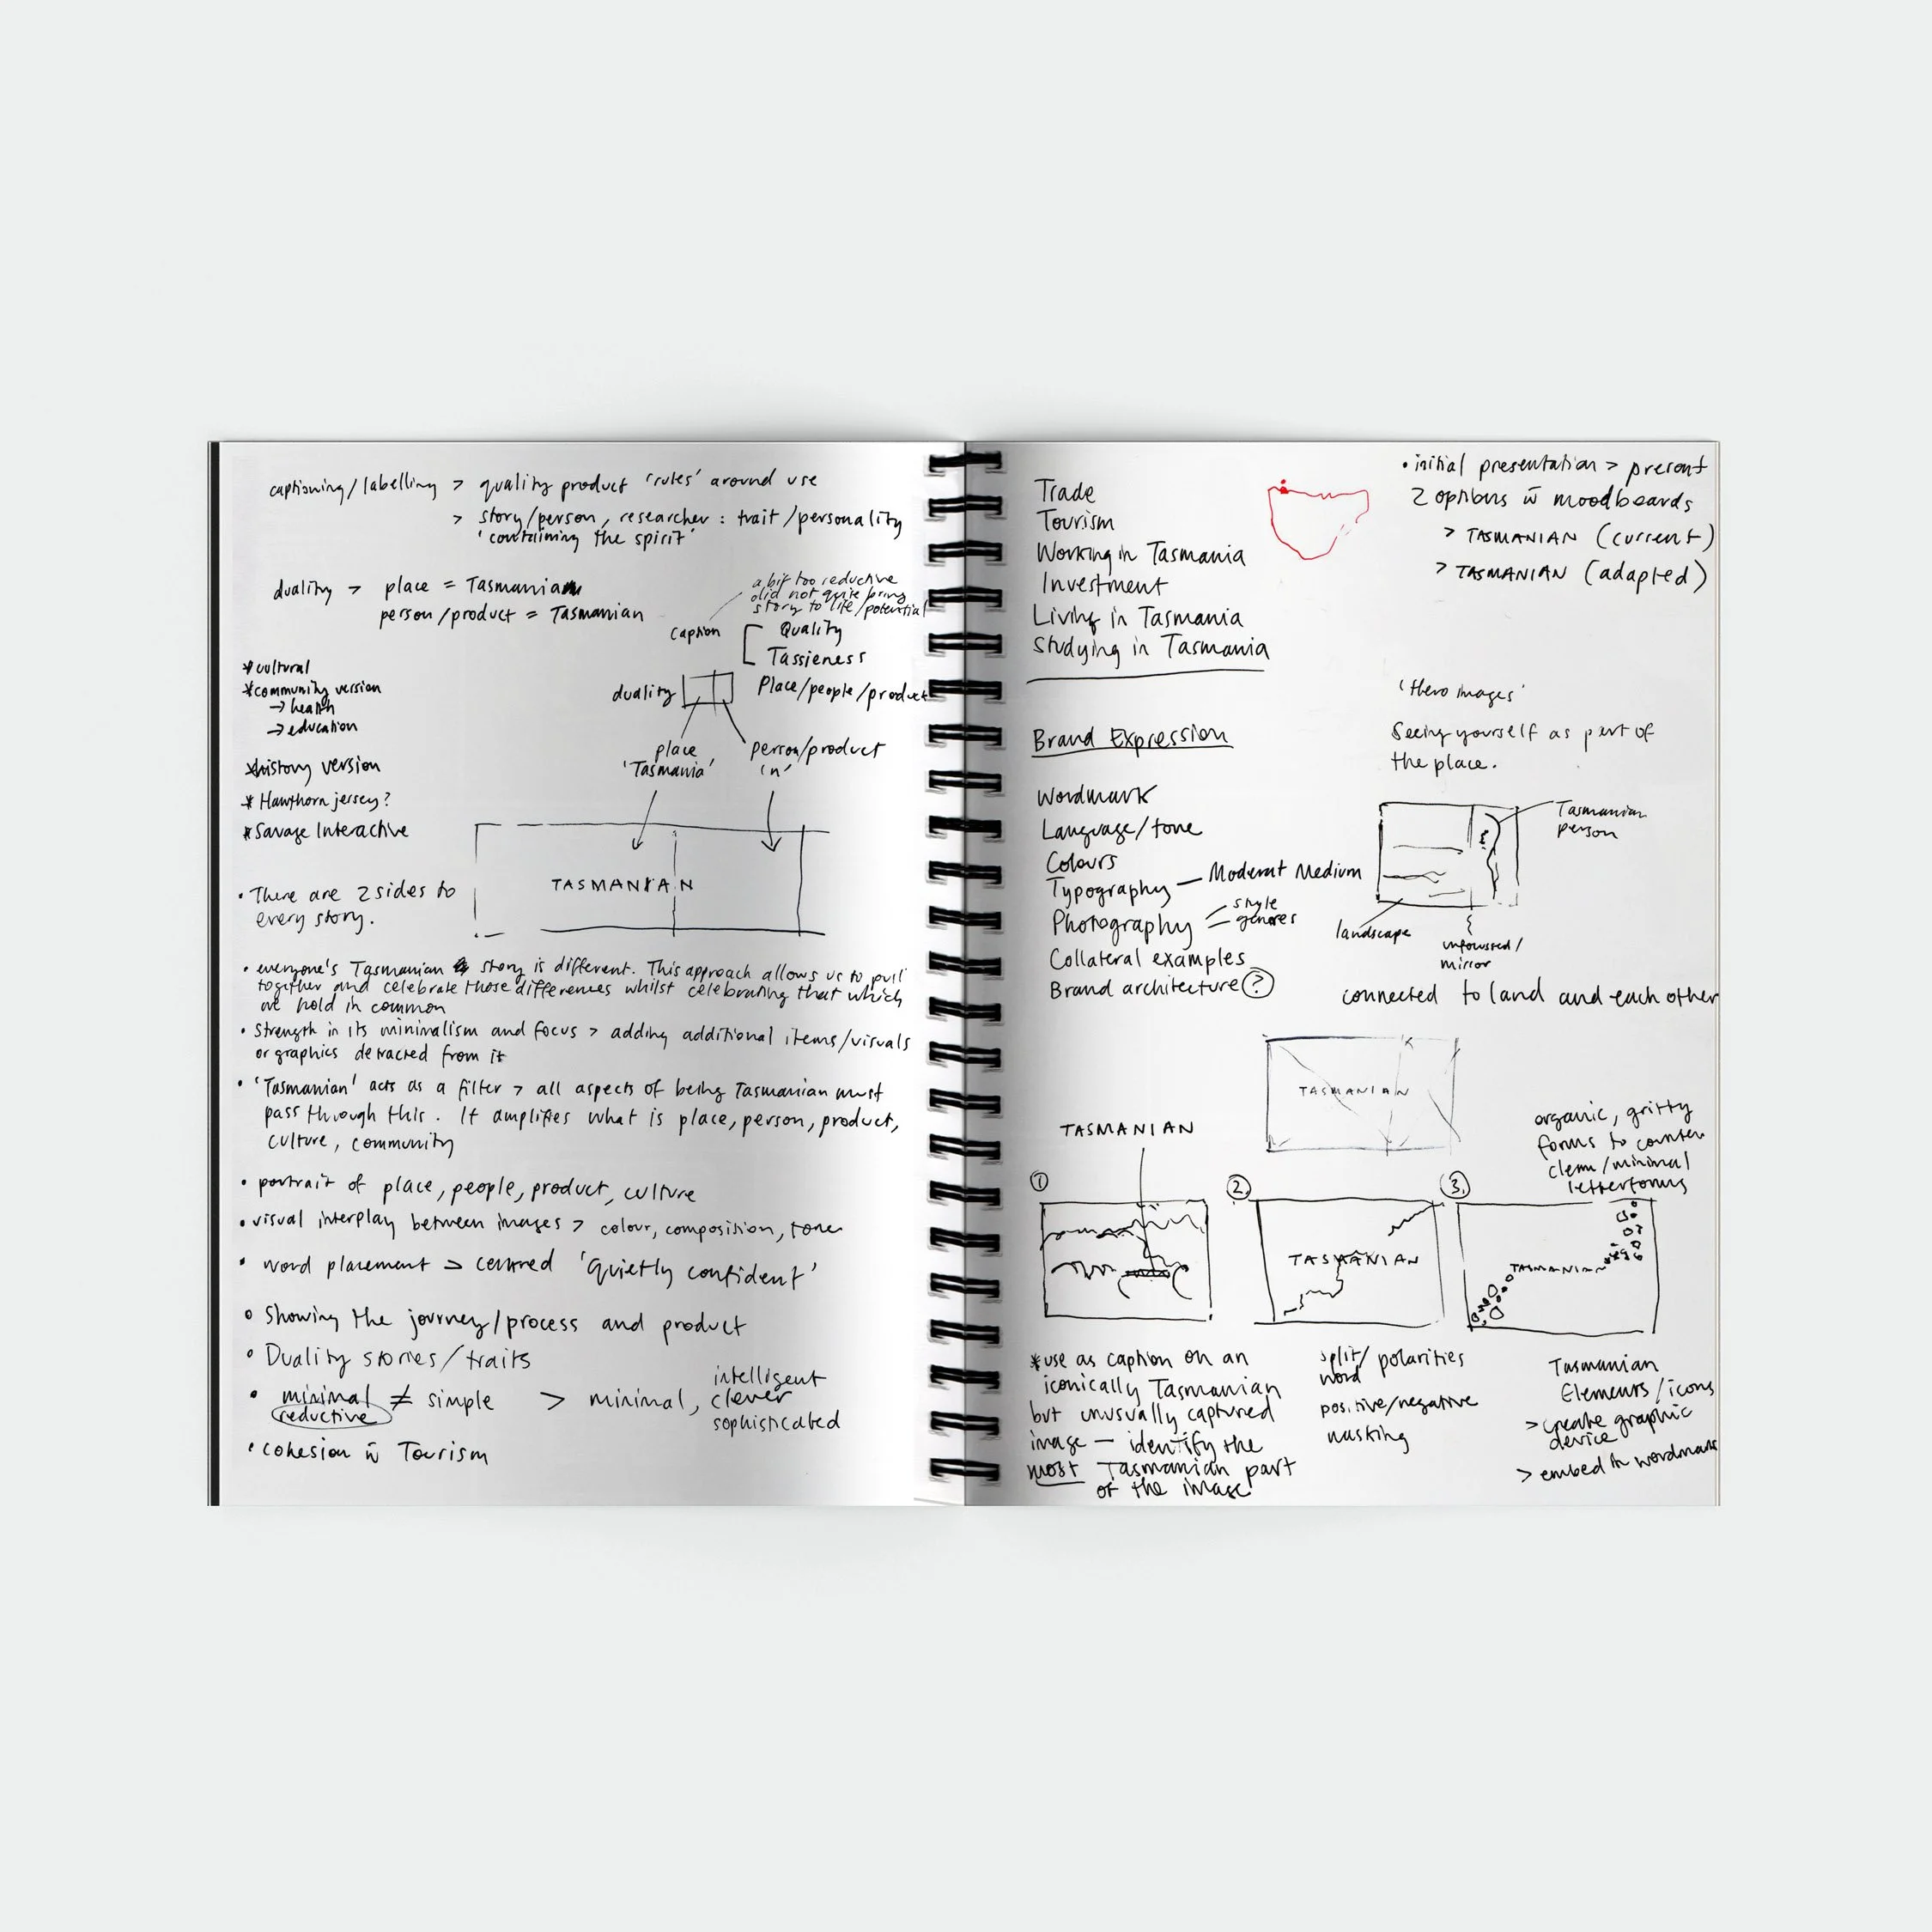 captioning/labelling > quality product 'rules' around use
> story/person, researcher : trait/personality
'containing the spirit'
duality > place = Tasmania
person/product = Tasmanian
a bit too reductive
did not quite bring
story to life/potential
caption
Quality
Tassieness
duality
Place/people/product
place
'Tasmania'
person/product
'n'
*cultural
*community version
→ health
→ education
*history version
* Hawthorn jersey?
* Savage Interactive
TASMANIAN
• There are 2 sides to
every story.
• everyone's Tasmanian story is different. This approach allows us to pull
together and celebrate those differences whilst celebrating that which
we hold in common
• Strength in its minimalism and focus > adding additional items/visuals
or graphics detracted from it
• 'Tasmanian' acts as a filter > all aspects of being Tasmanian must
pass through this. It amplifies what is place, person, product,
culture, community
• portrait of place, people, product, culture
• visual interplay between images > colour, composition, tone
• word placement > centred 'quietly confident'
• Showing the journey/process and product
• Duality stories/traits
• minimal ≠ simple > minimal, intelligent
clever
sophisticated
reductive
• cohesion w̄ Tourism
Trade
Tourism
Working in Tasmania
Investment
Living in Tasmania
Studying in Tasmania
• initial presentation > present
2 options w̄ moodboards
> TASMANIAN (current)
> TASMANIAN (adapted)
'Hero images'
Seeing yourself as part of
the place.
Brand Expression
Wordmark
Language/tone
Colours
Typography — Moderat Medium
Photography
style
genres
Collateral examples
Brand architecture ?
Tasmanian
person
landscape
unfocused/
mirror
connected to land and each other
TASMANIAN
TASMANIAN
organic, gritty
forms to counter
clean/minimal
letterforms
1
2.
3.
TASMANIAN
TASMANIAN
*use as caption on an
iconically Tasmanian
but unusually captured
image — identify the
most Tasmanian part
of the image
split/polarities
word
positive/negative
masking
Tasmanian
Elements/icons
> create graphic
device
> embed in wordmark